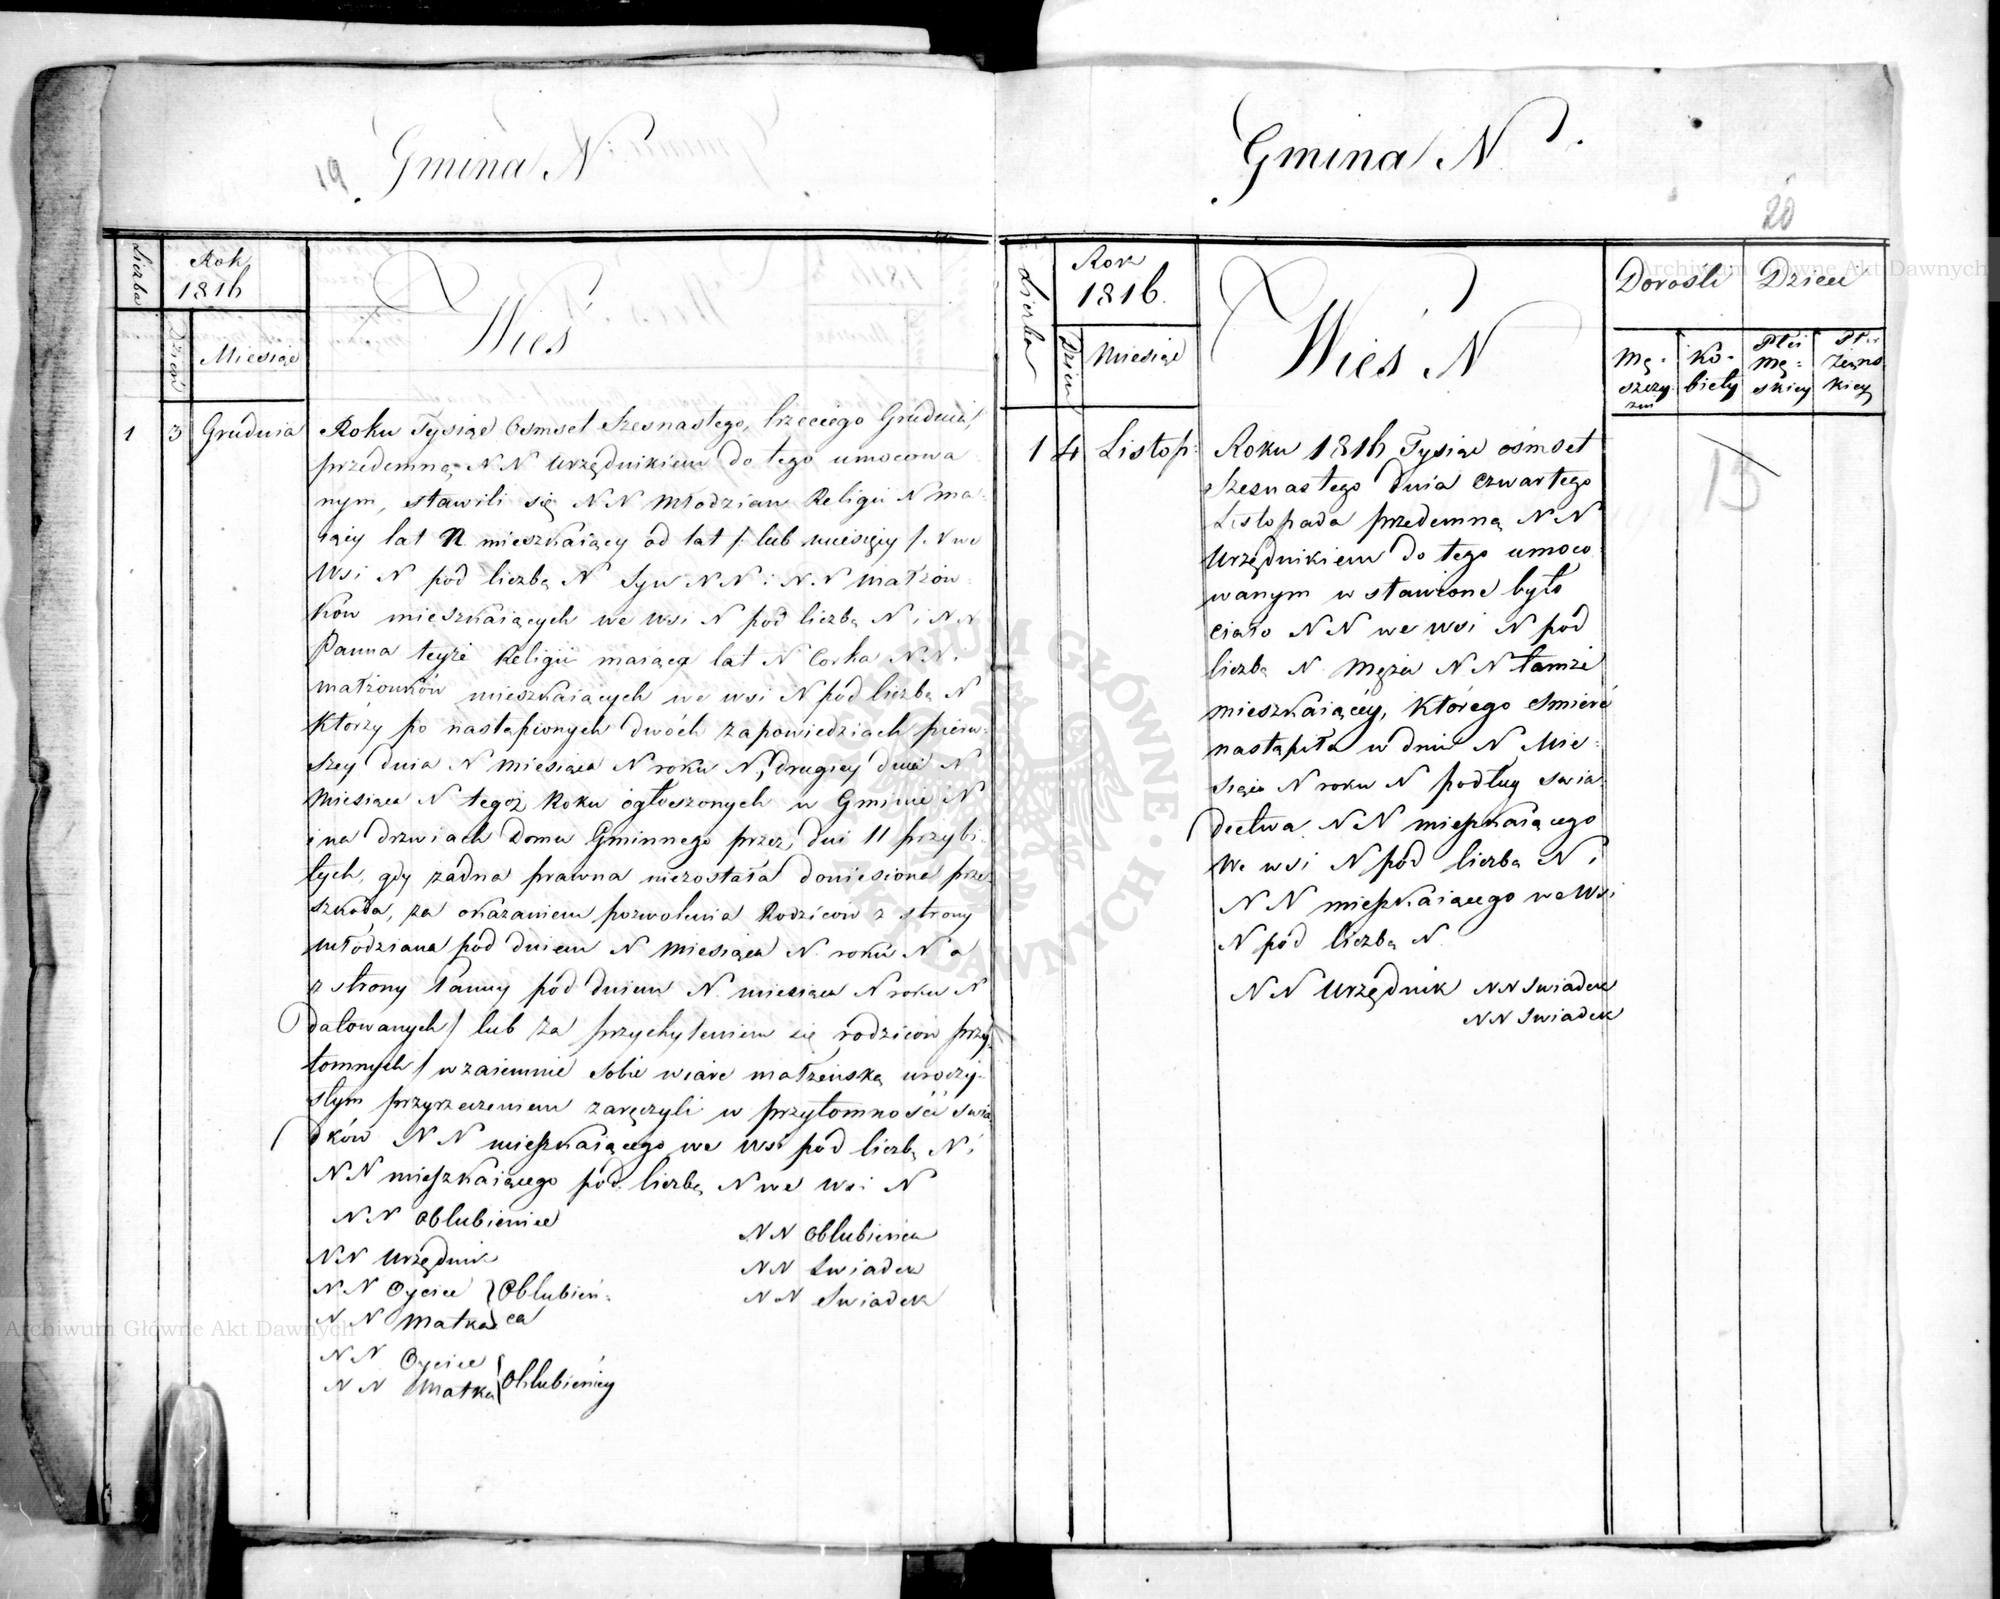 19
Gmina N
Liczba
Rok
1816
Dzień
Miesiąc
Wieś
1 3 Grudnia
Roku Tysiąc Osmset Szesnastego, trzeciego Grudnia,
przedemną NN Urzędnikiem do tego umocowa
nym, stawili się NN Młodzian Religii N ma-
iący lat N mieszkaiący od lat /: lub miesięcy /: N we
Wsi N pod liczbą N Syn NN i NN małżon-
ków mieszkaiących we wsi N pod liczbą N i NN
Panna teyże Religii maiąca lat N Corka NN.
małżonków mieszkaiących we wsi N pod liczbą N
którzy po nastąpionych dwóch zapowiedziach pierw-
szey dnia N miesiąca N roku N, drugiey dnia N
Miesiąca N tegoż Roku ogłoszonych w Gminie N
i na drzwiach Domu Gminnego przez dni 11 przybi-
tych, gdy żadna prawna niezostała doniesiona prze-
szkoda, za okazaniem pozwolenia Rodziców z strony
Młodziana pod dniem N Miesiąca N roku N a
z strony Panny pod dniem N miesiąca N roku N
datowanych / lub za przychyleniem się rodziców przy-
tomnych / wzaiemnie sobie wiarę małżeńską uroczy-
stym przyrzeczeniem zaręczyli w przytomności świa
dków NN mieszkaiącego we wsi pod liczbą N i
NN mieszkaiącego pod liczbą N we wsi N
NN Oblubieniec
NN Oblubienica
NN Urzędnik
NN Swiadek
NN Oyciec } Oblubień-
NN Swiadek
NN Matka } ca
NN Oyciec
NN Matka } Oblubienicy
Gmina N.
20
Liczba
Rok
1816.
Dzień
Miesiąc
Wieś N
Dorośli
Dzieci
Mę-
szczy
zni
Ko-
biety
Płci
Mę-
skiey
Płci
Żeńs
kiey
1 4 Listop:
Roku 1816 Tysiąc ośmset
Szesnastego dnia czwartego
Listopada przedemną NN
Urzędnikiem do tego umoco
wanym wstawione było
ciało NN we wsi N pod
liczbą N Męża NN tamże
mieszkaiącey, którego śmierć
nastąpiła w dniu N Mie-
siąca N roku N podług świa
dectwa NN mieszkaiącego
We wsi N pod liczbą N i
NN mieszkaiącego we Wsi
N pod liczbą N.
NN Urzędnik NN Swiadek
NN Swiadek
15
ARCHIWUM GŁÓWNE AKT DAWNYCH
Archiwum Główne Akt Dawnych
Archiwum Główne Akt Dawnych